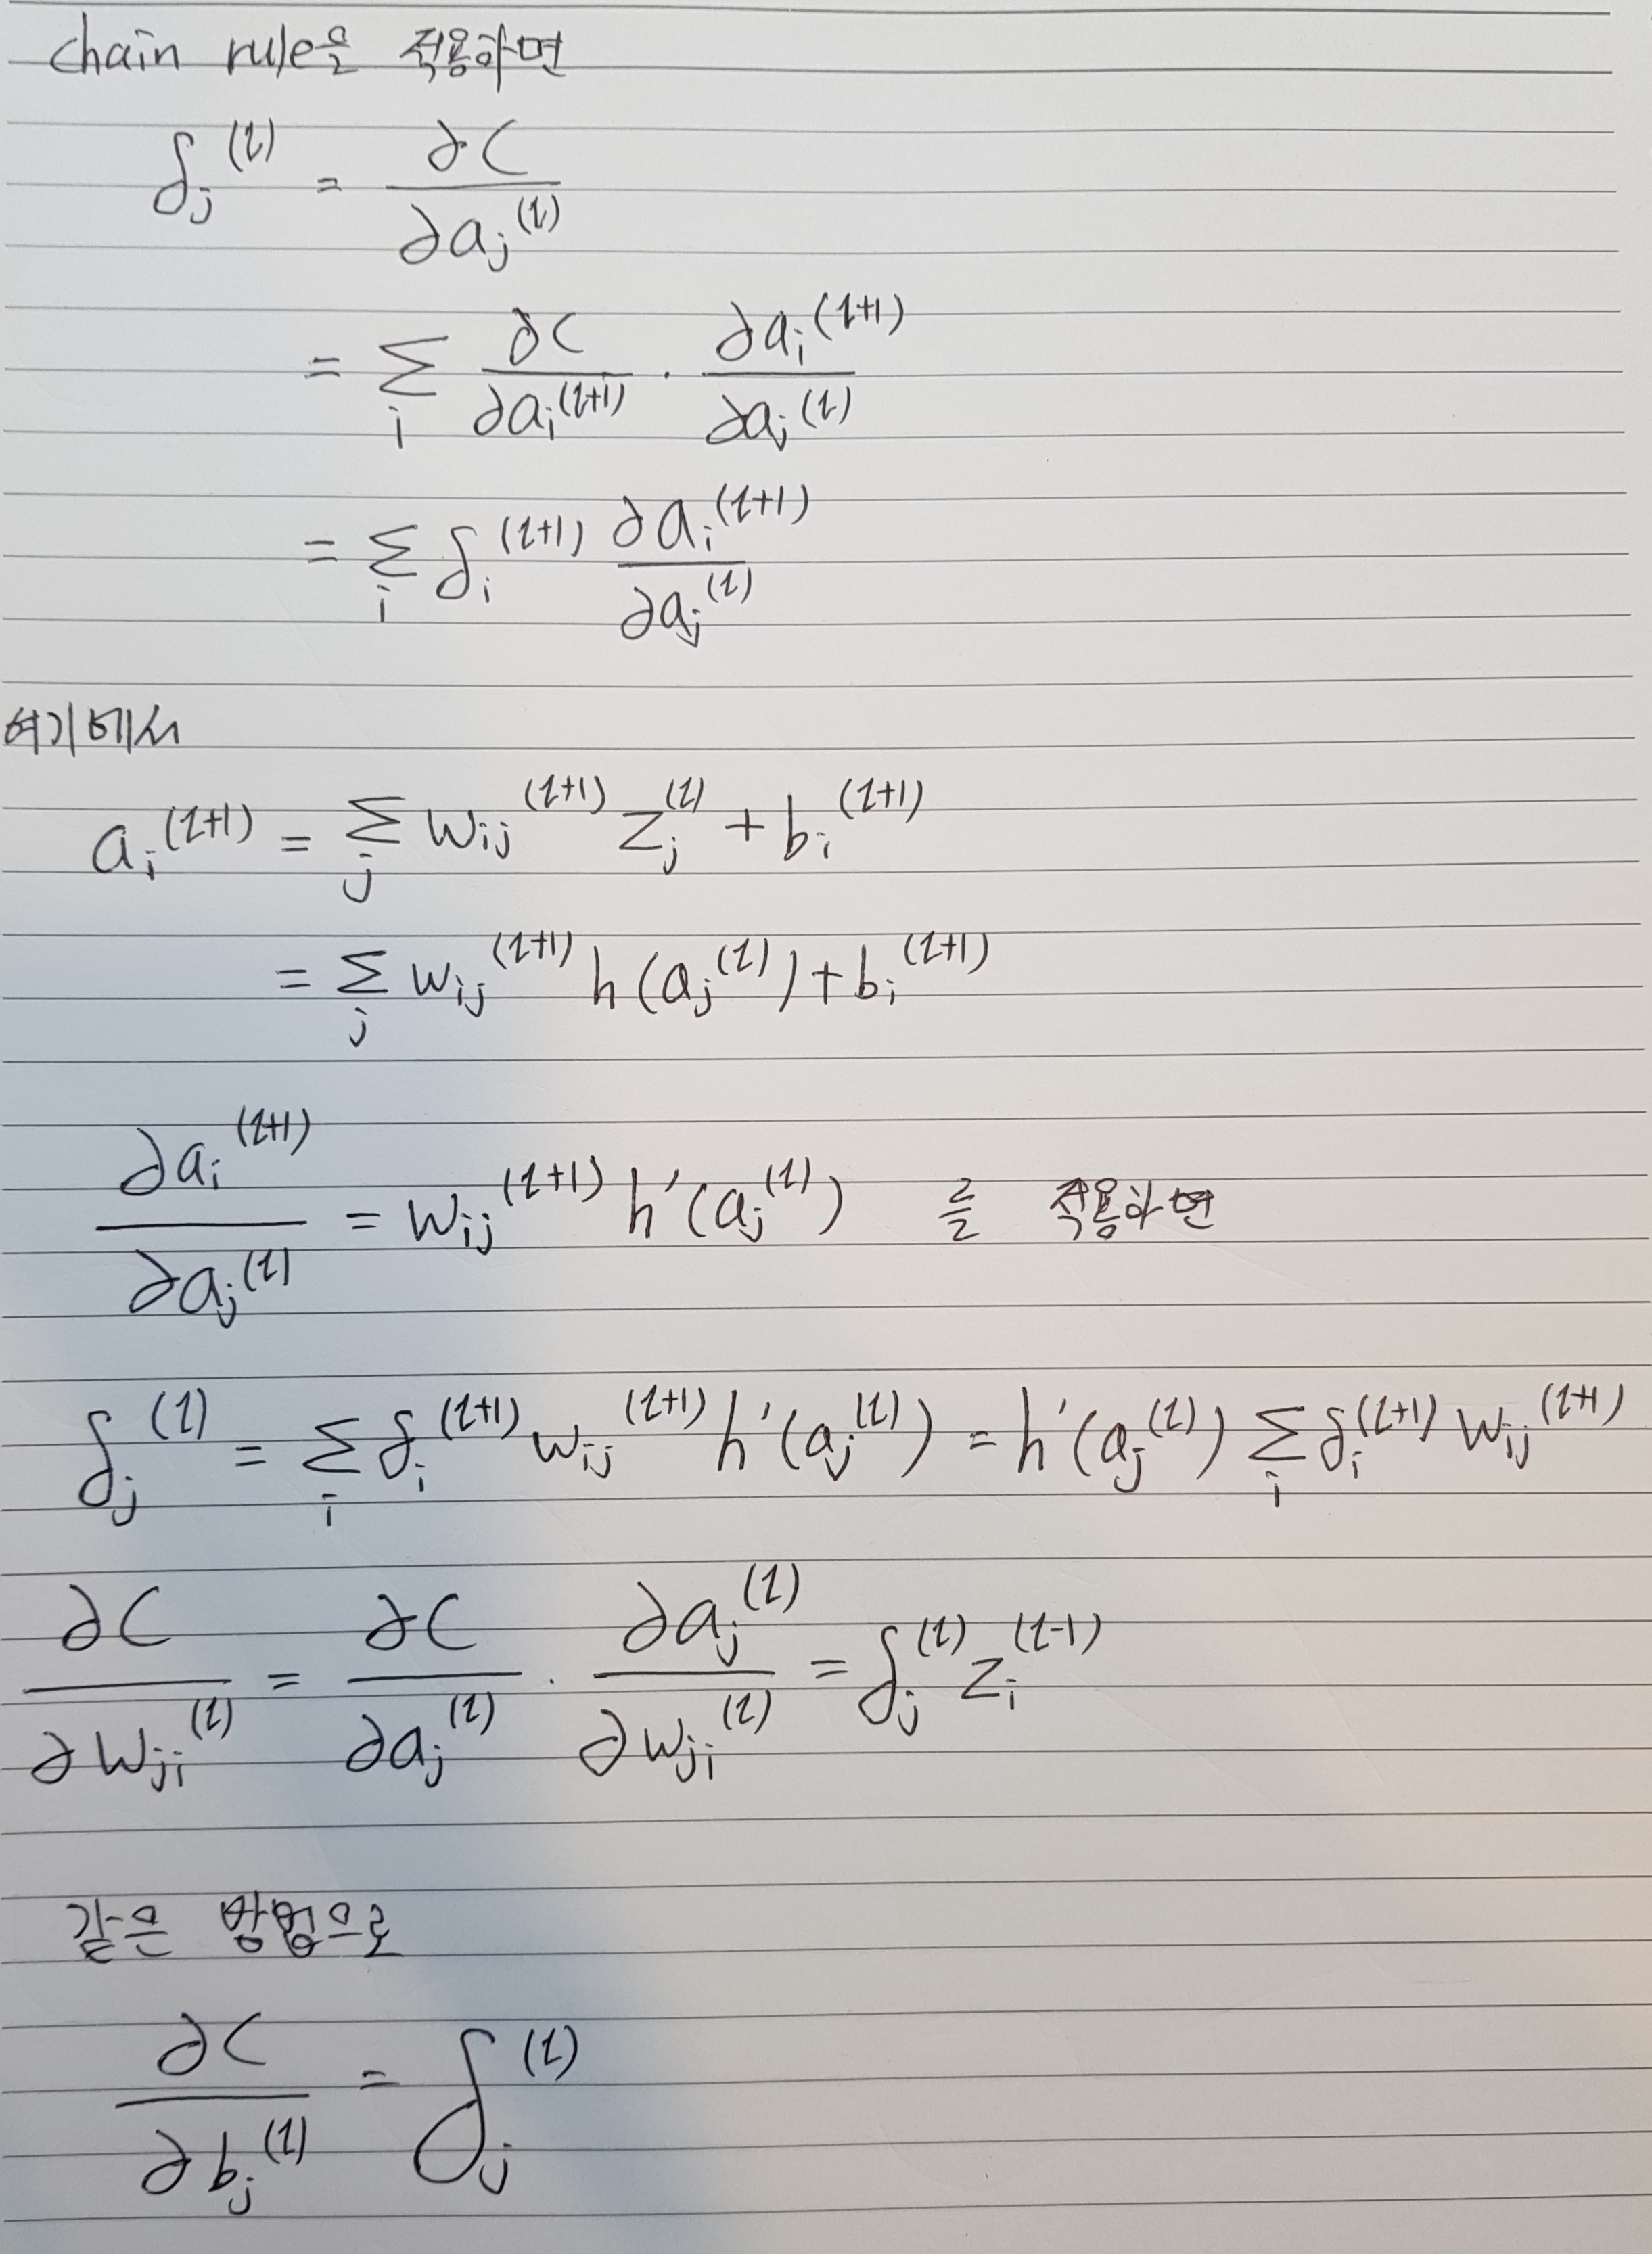 chain rule을 적용하면
δ_j^(l) = ∂C / ∂a_j^(l)
= Σ_i ∂C / ∂a_i^(l+1) · ∂a_i^(l+1) / ∂a_j^(l)
= Σ_i δ_i^(l+1) ∂a_i^(l+1) / ∂a_j^(l)
여기에서
a_i^(l+1) = Σ_j w_ij^(l+1) z_j^(l) + b_i^(l+1)
= Σ_j w_ij^(l+1) h(a_j^(l)) + b_i^(l+1)
∂a_i^(l+1) / ∂a_j^(l) = w_ij^(l+1) h'(a_j^(l)) 를 적용하면
δ_j^(l) = Σ_i δ_i^(l+1) w_ij^(l+1) h'(a_j^(l)) = h'(a_j^(l)) Σ_i δ_i^(l+1) w_ij^(l+1)
∂C / ∂w_ji^(l) = ∂C / ∂a_j^(l) · ∂a_j^(l) / ∂w_ji^(l) = δ_j^(l) z_i^(l-1)
같은 방법으로
∂C / ∂b_j^(l) = δ_j^(l)